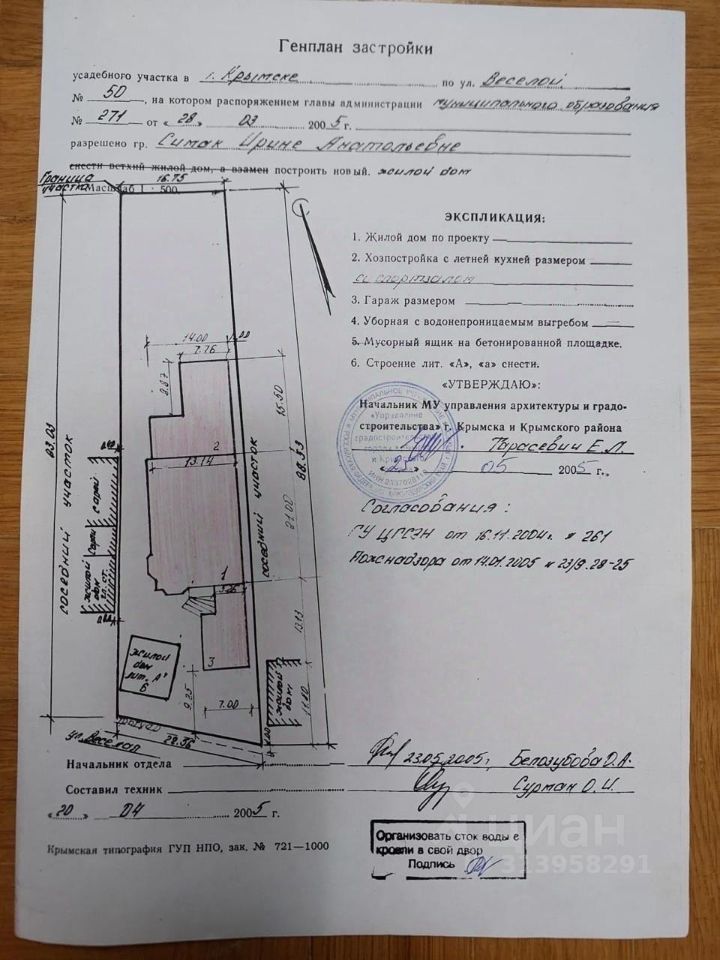 Генплан застройки
усадебного участка в г. Крымске по ул. Веселой
№ 50, на котором распоряжением главы администрации муниципального образования
№ 271 от «28» 03 2005 г.
разрешено гр. Симак Ирине Анатольевне
снести ветхий жилой дом, а взамен построить новый. жилой дом
Граница участка
Масштаб 1 : 500.
16.75
ЭКСПЛИКАЦИЯ:
1. Жилой дом по проекту
2. Хозпостройка с летней кухней размером
со спортзалом
3. Гараж размером
4. Уборная с водонепроницаемым выгребом
5. Мусорный ящик на бетонированной площадке.
6. Строение лит. «А», «а» снести.
«УТВЕРЖДАЮ»:
Начальник МУ управления архитектуры и градо-
строительства» г. Крымска и Крымского района
Тарасевич Е.Л.
«23» 05 2005 г.
Согласования:
ГУ ЦГСЭН от 16.11.2004г. № 261
Пожнадзора от 14.01.2005 № 23/9.28-25
14.00
7.76
8.87
15.50
2
13.14
63.03
88.53
21.00
соседний участок
соседний участок
сарай
сарай
жилой дом
1
3
13.13
жилой дом лит. "А"
6
9.25
7.00
жилой дом
11.80
тротуар
ул. Веселая
22.36
Начальник отдела 23.05.2005г. Белозубова О.А.
Составил техник Сурман О.И.
«20» 04 2005 г.
Крымская типография ГУП НПО, зак. № 721—1000
Организовать сток воды с
кровли в свой двор
Подпись
циан
323958291